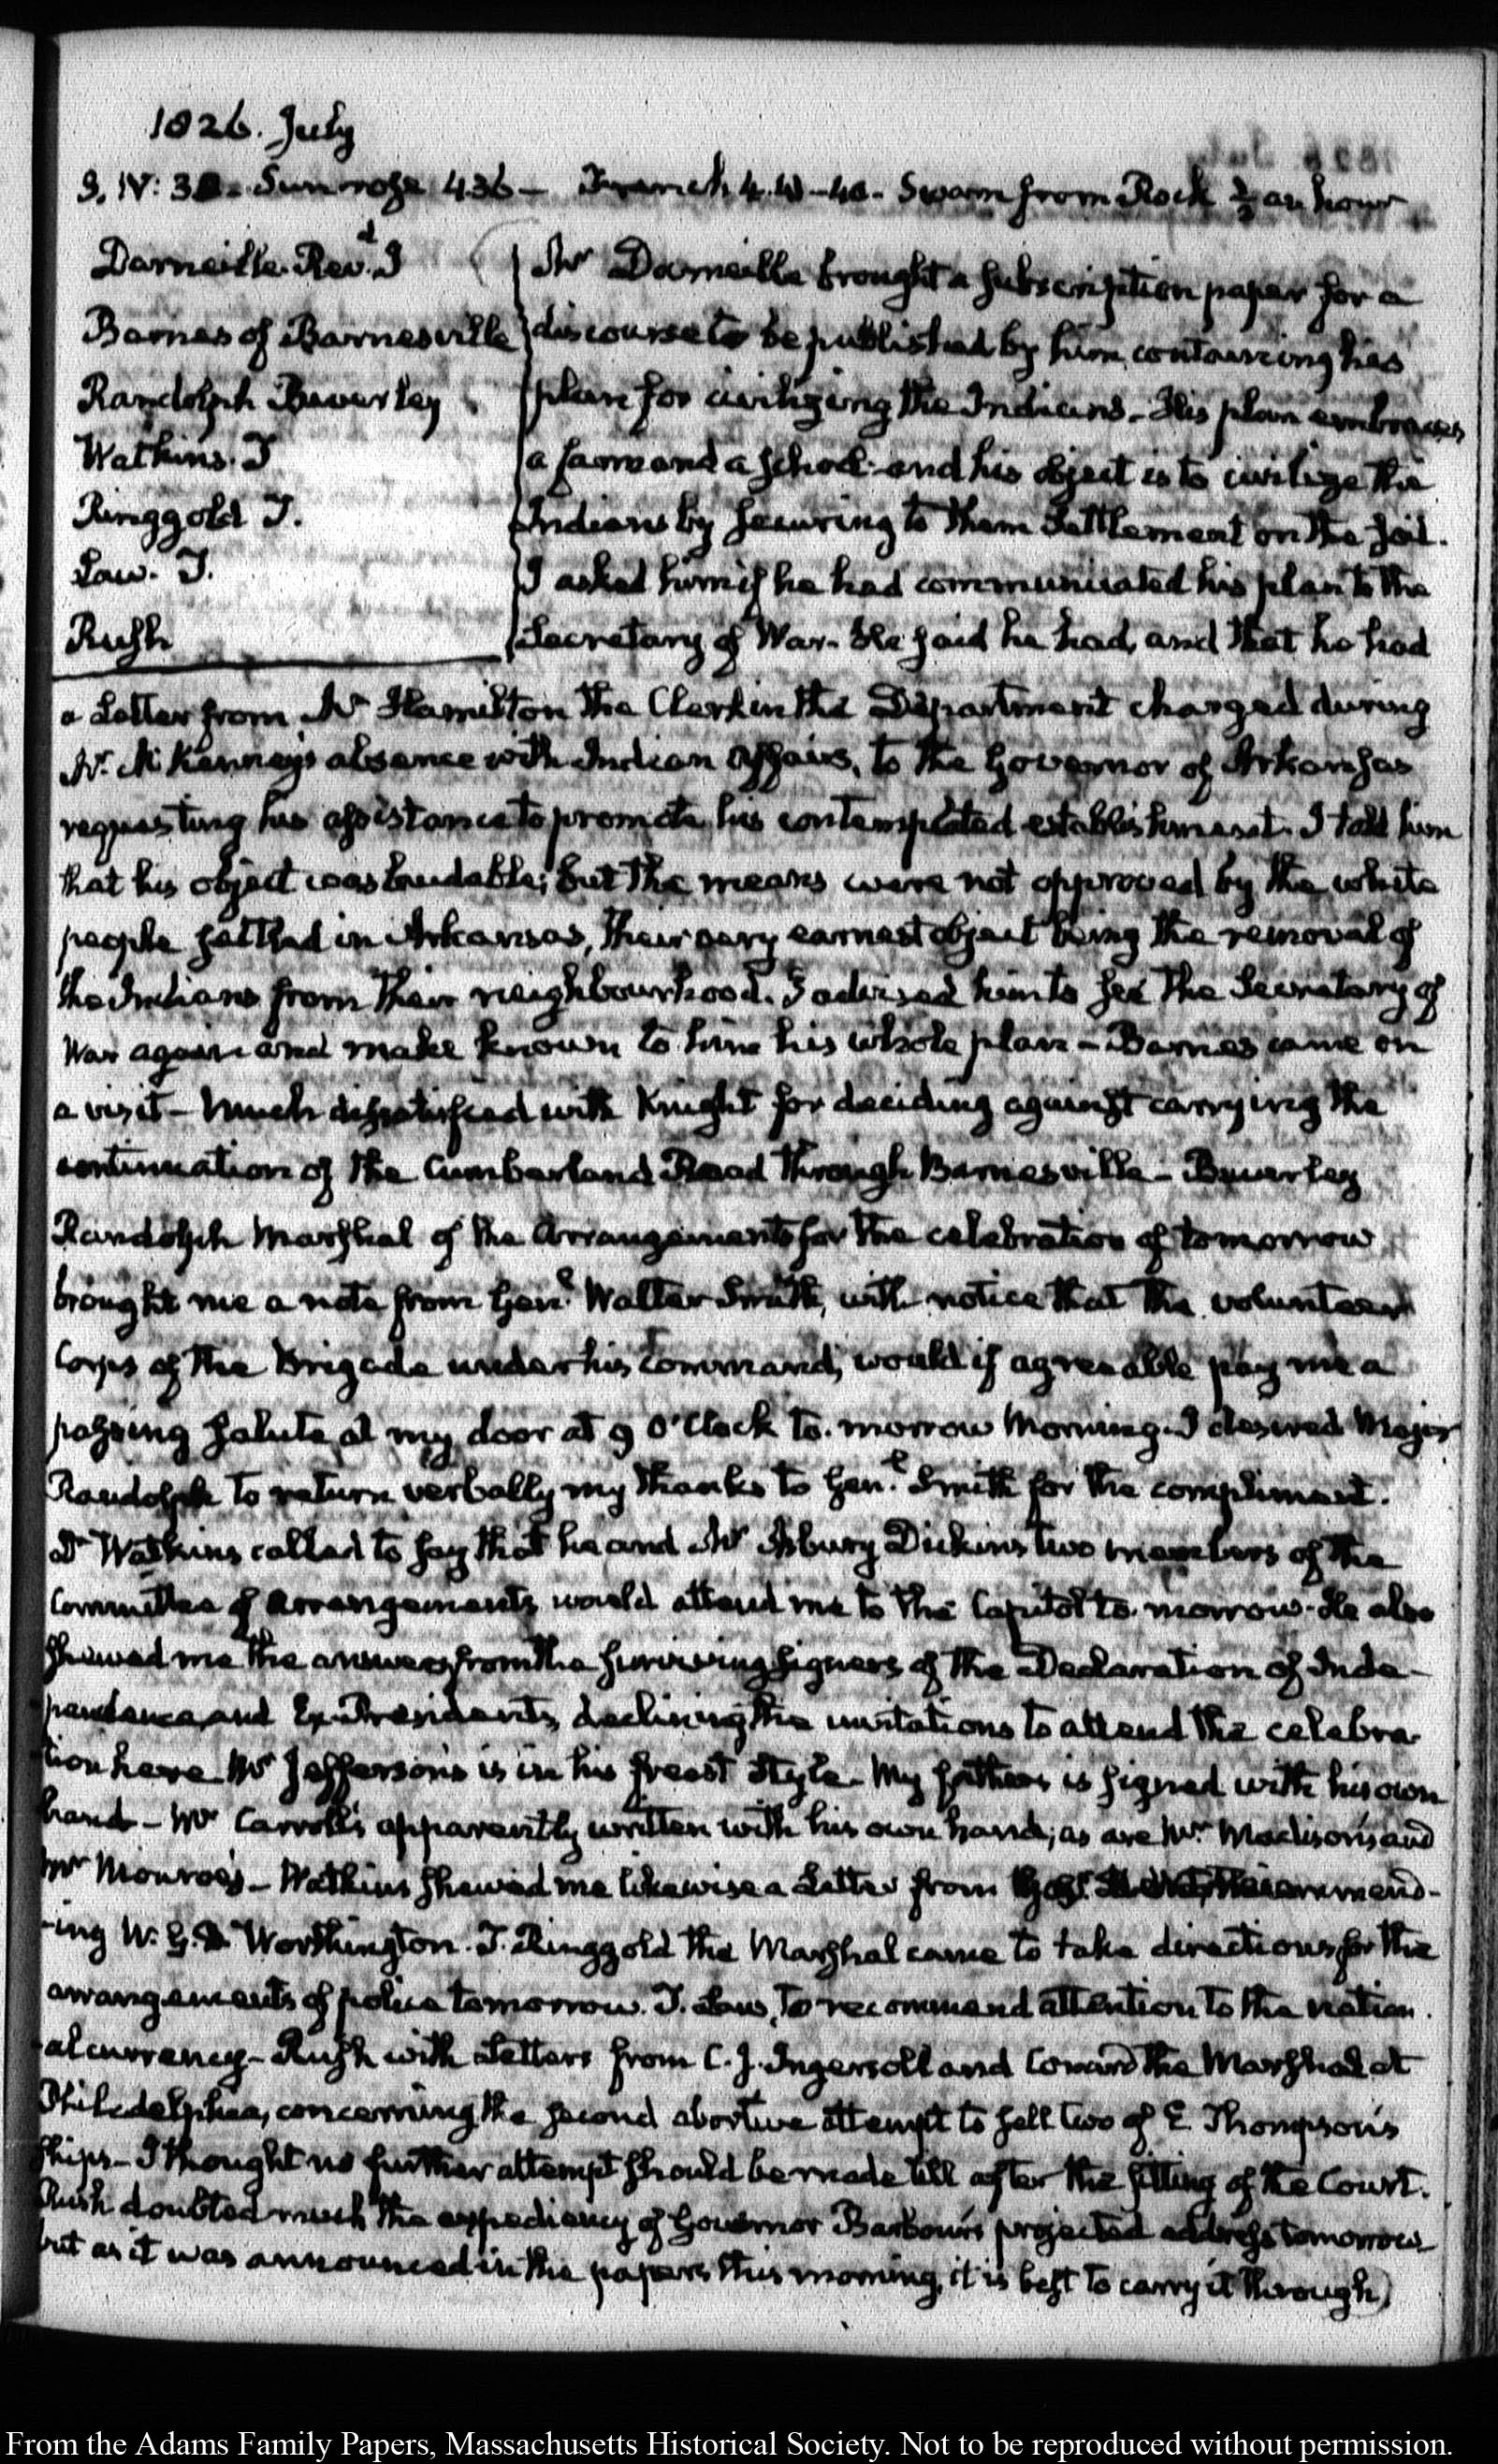 1826. July
3. IV: 30. Sun rose 4.36 — French 4.40 — 40. Swam from Rock ½ an hour
Darneille. Revd. I
Barnes of Barnesville
Randolph Beverley
Watkins. T
Ringgold T.
Law. T.
Rush
Mr Darneille brought a subscription paper for a
discourse to be published by him, containing his
plan for civilizing the Indians. His plan embraces
a farm and a school: and his object is to civilize the
Indians by securing to them Settlement on the soil.
I asked him if he had communicated his plan to the
Secretary of War. He said he had, and that he had
a Letter from Mr Hamilton the Clerk in the Department charged during
Mr. McKenney's absence with Indian Affairs, to the Governor of Arkansas
requesting his assistance to promote his contemplated establishment. I told him
that his object was laudable; but the means were not approved by the white
people settled in Arkansas, their very earnest object being the removal of
the Indians from their neighbourhood. I advised him to see the Secretary of
War again and make known to him his whole plan – Barnes came on
a visit – Much dissatisfied with Knight for deciding against carrying the
continuation of the Cumberland Road through Barnesville – Beverley
Randolph Marshal of the Arrangements for the celebration of tomorrow
brought me a note from Genl. Walter Smith, with notice that the volunteer
Corps of the Brigade under his command, would if agreeable pay me a
passing salute, at my door at 9 O'Clock to-morrow Morning. I desired Major
Randolph to return verbally my thanks to Genl. Smith for the compliment.
Dr Watkins called to say that he and Mr Asbury Dickins two members of the
Committee of Arrangements, would attend me to the Capitol to-morrow. He also
shewed me the answers from the surviving signers of the Declaration of Inde-
pendence, and Ex-Presidents, declining the invitations to attend the celebra-
tion here Mr Jefferson's is in his freest style. My father's is signed with his own
hand – Mr Carroll's apparently written with his own hand; as are Mr. Madison's and
Mr Monroe's – Watkins shewed me likewise a Letter from recommend-
-ing W. G. D. Worthington. T. Ringgold the Marshal came to take directions for the
arrangements of police tomorrow. T. Law, to recommend attention to the nation-
-al currency – Rush with Letters from C. J. Ingersoll and Conard the Marshal at
Philadelphia, concerning the second abortive attempt to sell two of E. Thompson's
ships – I thought no further attempt should be made till after the sitting of the Court.
Rush doubted much the expediency of Governor Barbour's projected address tomorrow
but as it was announced in the papers this morning, it is best to carry it through)
From the Adams Family Papers, Massachusetts Historical Society. Not to be reproduced without permission.